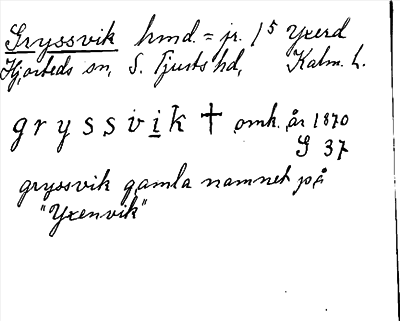 Gryssvik hmd. = jr. 1⁵ Yxerd
Hjorteds sn, S. Tjusts hd, Kalm. l.
gryssvik † omk. år 1870
S 37
gryssvik gamla namnet på
"Yxenvik"